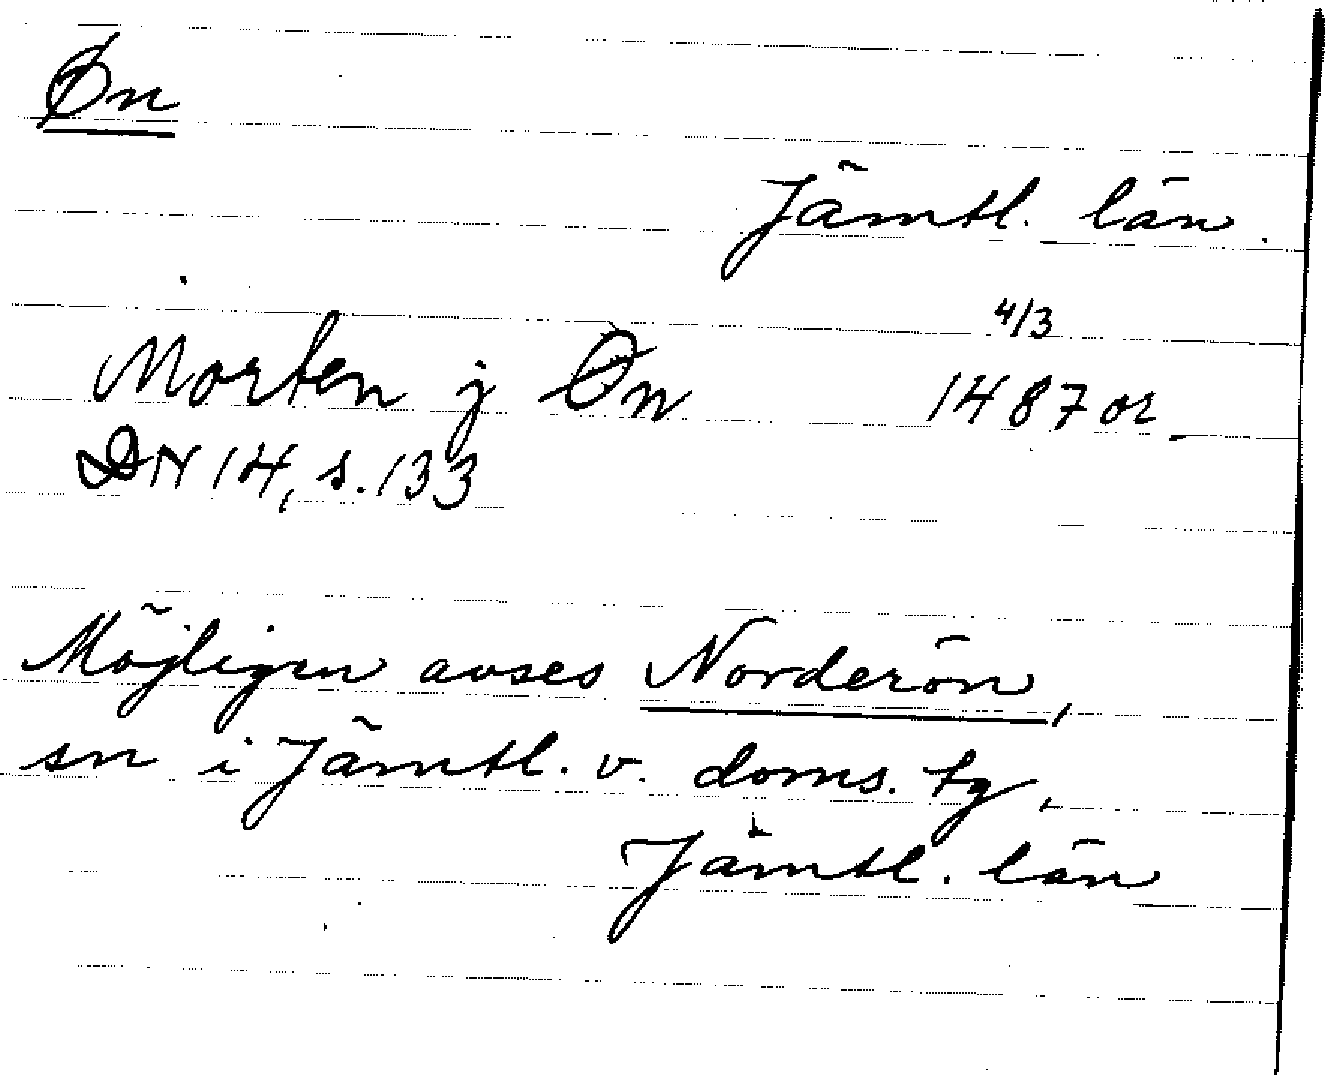 Øn
Jämtl. län.
4/3
Morten j Øn 1487 or
DN 14, s. 133
Möjligen avses Norderön,
sn i Jämtl. v. doms. tg,
Jämtl. län